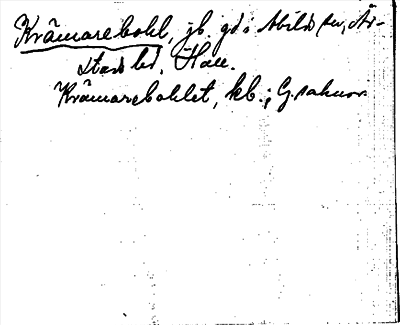 Krämarebohl, jb. gd i Abilds sn, År-
stads hd, Hall.
Krämarebohlet, kb.; G. saknas